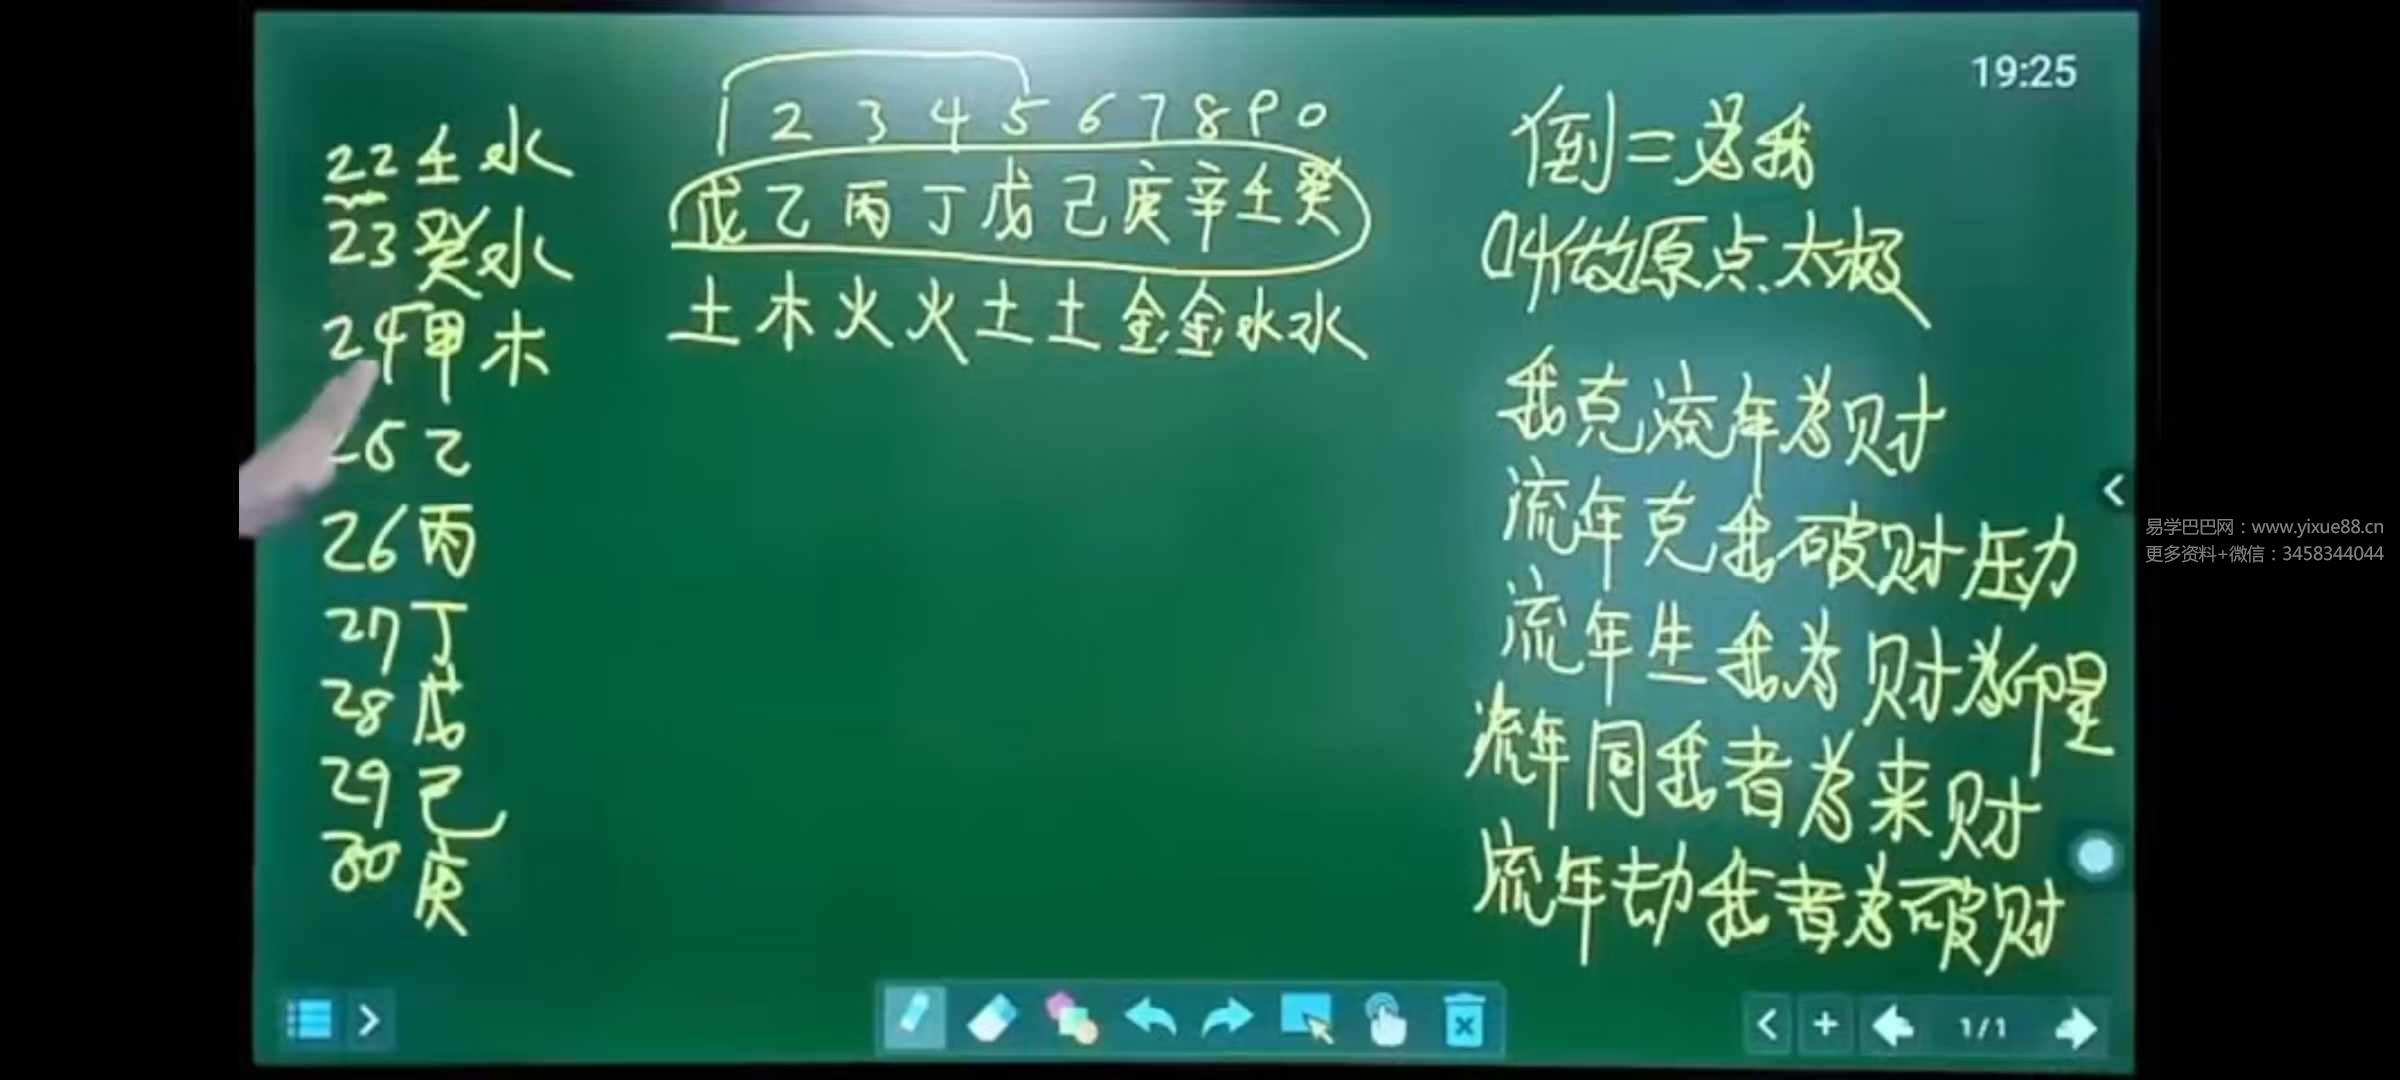 19:25
22壬水
23癸水
24甲木
25乙
26丙
27丁
28戊
29己
30庚
1 2 3 4 5 6 7 8 9 0
戊乙丙丁戊己庚辛壬癸
土木火火土土金金水水
倒二为我
叫做原点.太极
我克流年为财
流年克我破财压力
流年生我为财为印星
流年同我者为来财
流年劫我者为破财
易学巴巴网：www.yixue88.cn
更多资料+微信：3458344044
1/1